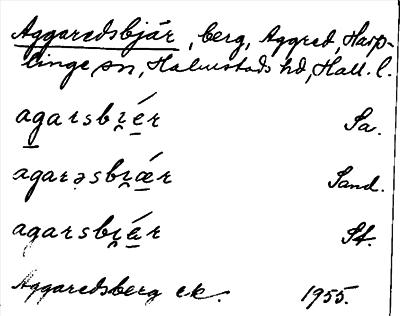 Aggaredsbjär, berg, Aggred, Harp-
linge sn, Halmstads hd, Hall. l.
agarsbɪ̯ér Sa.
agarəsbɪ̯ǽr Sand.
agarsbɪ̯ár St.
Aggaredsberg ek. 1955.